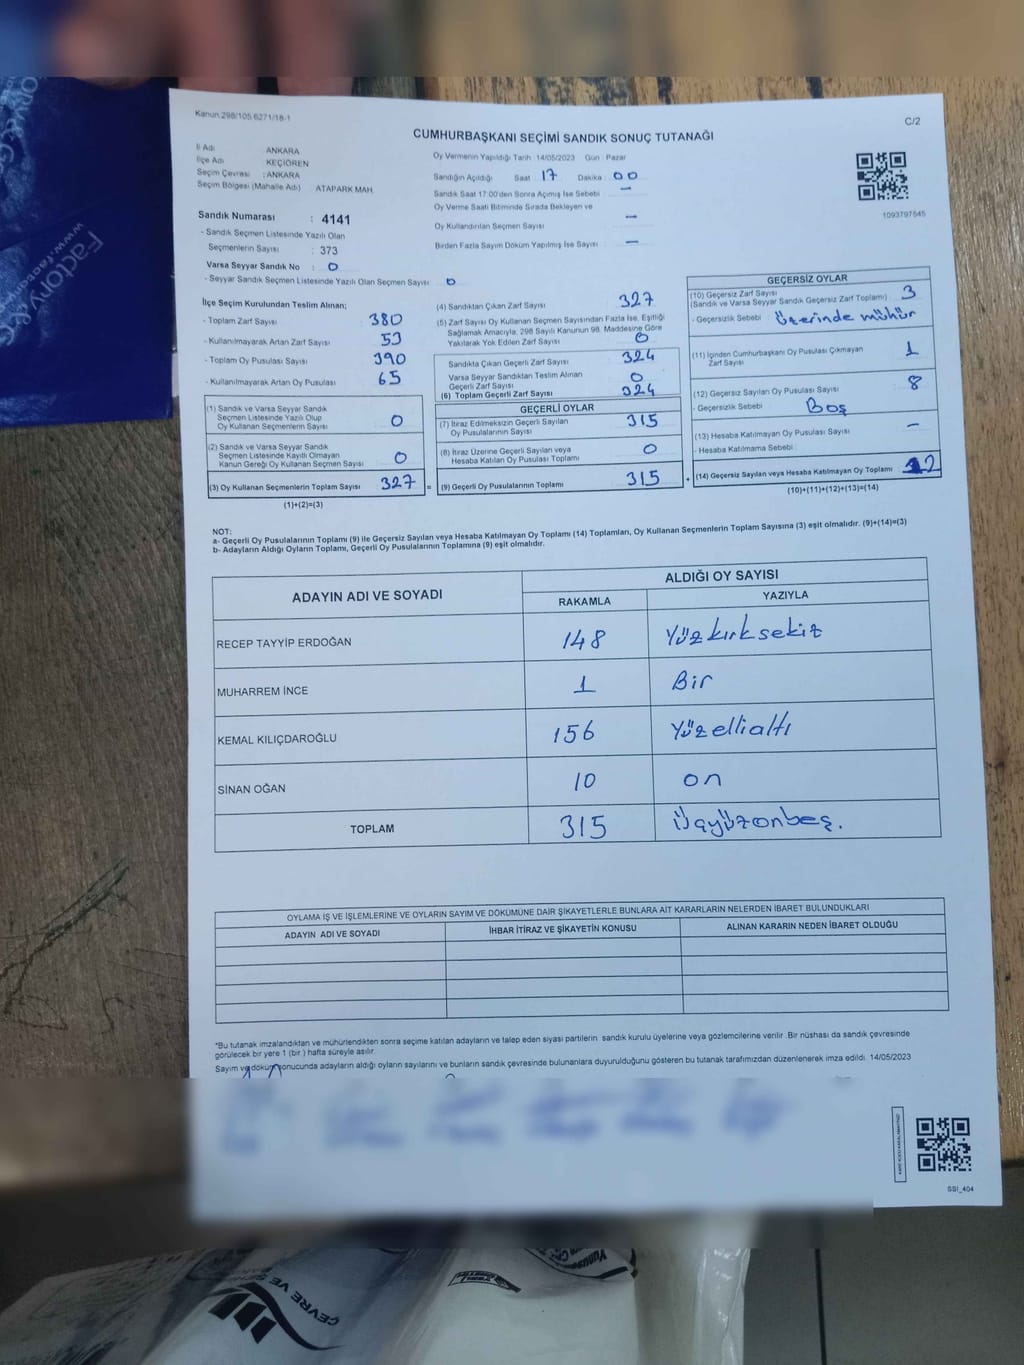 Kanun 298/105 6271/18-1
C/2
CUMHURBAŞKANI SEÇİMİ SANDIK SONUÇ TUTANAĞI
İl Adı : ANKARA
İlçe Adı KEÇİÖREN
Seçim Çevresi : ANKARA
Seçim Bölgesi (Mahalle Adı) : ATAPARK MAH.
Sandık Numarası : 4141
- Sandık Seçmen Listesinde Yazılı Olan
Seçmenlerin Sayısı : 373
Varsa Seyyar Sandık No : 0
- Seyyar Sandık Seçmen Listesinde Yazılı Olan Seçmen Sayısı 0
Oy Vermenin Yapıldığı Tarih 14/05/2023 Gün : Pazar
Sandığın Açıldığı Saat 17 Dakika 00
Sandık Saat 17:00'den Sonra Açımış İse Sebebi –
Oy Verme Saati Bitiminde Sırada Bekleyen ve
Oy Kullandırılan Seçmen Sayısı –
Birden Fazla Sayım Döküm Yapılmış İse Sayısı –
1093797545
İlçe Seçim Kurulundan Teslim Alınan;
- Toplam Zarf Sayısı 380
- Kullanılmayarak Artan Zarf Sayısı 53
- Toplam Oy Pusulası Sayısı 390
- Kullanılmayarak Artan Oy Pusulası 65
(1) Sandık ve Varsa Seyyar Sandık
Seçmen Listesinde Yazılı Olup
Oy Kullanan Seçmenlerin Sayısı 0
(2) Sandık ve Varsa Seyyar Sandık
Seçmen Listesinde Kayıtlı Olmayan
Kanun Gereği Oy Kullanan Seçmen Sayısı 0
(3) Oy Kullanan Seçmenlerin Toplam Sayısı 327 =
(1)+(2)=(3)
(4) Sandıktan Çıkan Zarf Sayısı 327
(5) Zarf Sayısı Oy Kullanan Seçmen Sayısından Fazla İse, Eşitliği
Sağlamak Amacıyla, 298 Sayılı Kanunun 98. Maddesine Göre
Yakılarak Yok Edilen Zarf Sayısı 0
Sandıkta Çıkan Geçerli Zarf Sayısı 324
Varsa Seyyar Sandıktan Teslim Alınan
Geçerli Zarf Sayısı 0
(6) Toplam Geçerli Zarf Sayısı 324
GEÇERLİ OYLAR
(7) İtiraz Edilmeksizin Geçerli Sayılan
Oy Pusulalarının Sayısı 315
(8) İtiraz Üzerine Geçerli Sayılan veya
Hesaba Katılan Oy Pusulası Toplamı 0
(9) Geçerli Oy Pusulalarının Toplamı 315 +
GEÇERSİZ OYLAR
(10) Geçersiz Zarf Sayısı 3
(Sandık ve Varsa Seyyar Sandık Geçersiz Zarf Toplamı)
- Geçersizlik Sebebi : üzerinde mühür
(11) İçinden Cumhurbaşkanı Oy Pusulası Çıkmayan
Zarf Sayısı 1
(12) Geçersiz Sayılan Oy Pusulası Sayısı 8
- Geçersizlik Sebebi Boş
(13) Hesaba Katılmayan Oy Pusulası Sayısı –
- Hesaba Katılmama Sebebi
(14) Geçersiz Sayılan veya Hesaba Katılmayan Oy Toplamı 12
(10)+(11)+(12)+(13)=(14)
NOT:
a- Geçerli Oy Pusulalarının Toplamı (9) ile Geçersiz Sayılan veya Hesaba Katılmayan Oy Toplamı (14) Toplamları, Oy Kullanan Seçmenlerin Toplam Sayısına (3) eşit olmalıdır. (9)+(14)=(3)
b- Adayların Aldığı Oyların Toplamı, Geçerli Oy Pusulalarının Toplamına (9) eşit olmalıdır.
ADAYIN ADI VE SOYADI
ALDIĞI OY SAYISI
RAKAMLA YAZIYLA
RECEP TAYYİP ERDOĞAN 148 Yüzkırksekiz
MUHARREM İNCE 1 Bir
KEMAL KILIÇDAROĞLU 156 Yüzellialtı
SİNAN OĞAN 10 on
TOPLAM 315 Üçyüzonbeş.
OYLAMA İŞ VE İŞLEMLERİNE VE OYLARIN SAYIM VE DÖKÜMÜNE DAİR ŞİKAYETLERLE BUNLARA AİT KARARLARIN NELERDEN İBARET BULUNDUKLARI
ADAYIN ADI VE SOYADI İHBAR İTİRAZ VE ŞİKAYETİN KONUSU ALINAN KARARIN NEDEN İBARET OLDUĞU
*Bu tutanak imzalandıktan ve mühürlendikten sonra seçime katılan adayların ve talep eden siyasi partilerin sandık kurulu üyelerine veya gözlemcilerine verilir. Bir nüshası da sandık çevresinde
görülecek bir yere 1 (bir) hafta süreyle asılır.
Sayım ve döküm sonucunda adayların aldığı oyların sayılarını ve bunların sandık çevresinde bulunanlara duyurulduğunu gösteren bu tutanak tarafımızdan düzenlenerek imza edildi. 14/05/2023
SSI_404
Factory
ÇEVRE VE